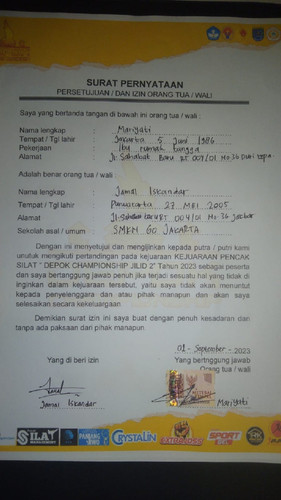 SURAT PERNYATAAN
PERSETUJUAN / DAN IZIN ORANG TUA / WALI
Saya yang bertanda tangan di bawah ini orang tua / wali :
Nama lengkap : Mariyati
Tempat / Tgl lahir : Jakarta 5 Juni 1986
Pekerjaan : Ibu rumah tangga
Alamat : Jl. Sahabat Baru RT 004/01 No 36 Duri kepa
Adalah benar orang tua / wali :
Nama lengkap : Jamal Iskandar
Tempat / Tgl lahir : Purwakarta 27 MEI 2005
Alamat : RT 004/01 No 36 Jakbar
Sekolah asal / umum : SMKN 60 JAKARTA
Dengan ini menyetujui dan mengijinkan kepada putra / putri kami
unutuk mengikuti pertandingan pada kejuaraan KEJUARAAN PENCAK
SILAT " DEPOK CHAMPIONSHIP JILID 2" Tahun 2023 sebagai peserta
dan saya bertanggung jawab penuh jika terjadi sesuatu hal yang tidak di
inginkan dalam kejuaraan tersebut, yaitu saya tidak akan menuntut
kepada penyelenggara dan atau pihak manapun dan akan saya
selesaikan secara kekeluargaan
Demikian surat izin ini saya buat dengan penuh kesadaran dan
tanpa ada paksaan dari pihak manapun.
01 - September - 2023
Yang di beri izin
Yang bertnggung jawab
Orang tua / wali
Jamal Iskandar
Mariyati
SILAT
CRYSTALIN
SPORT